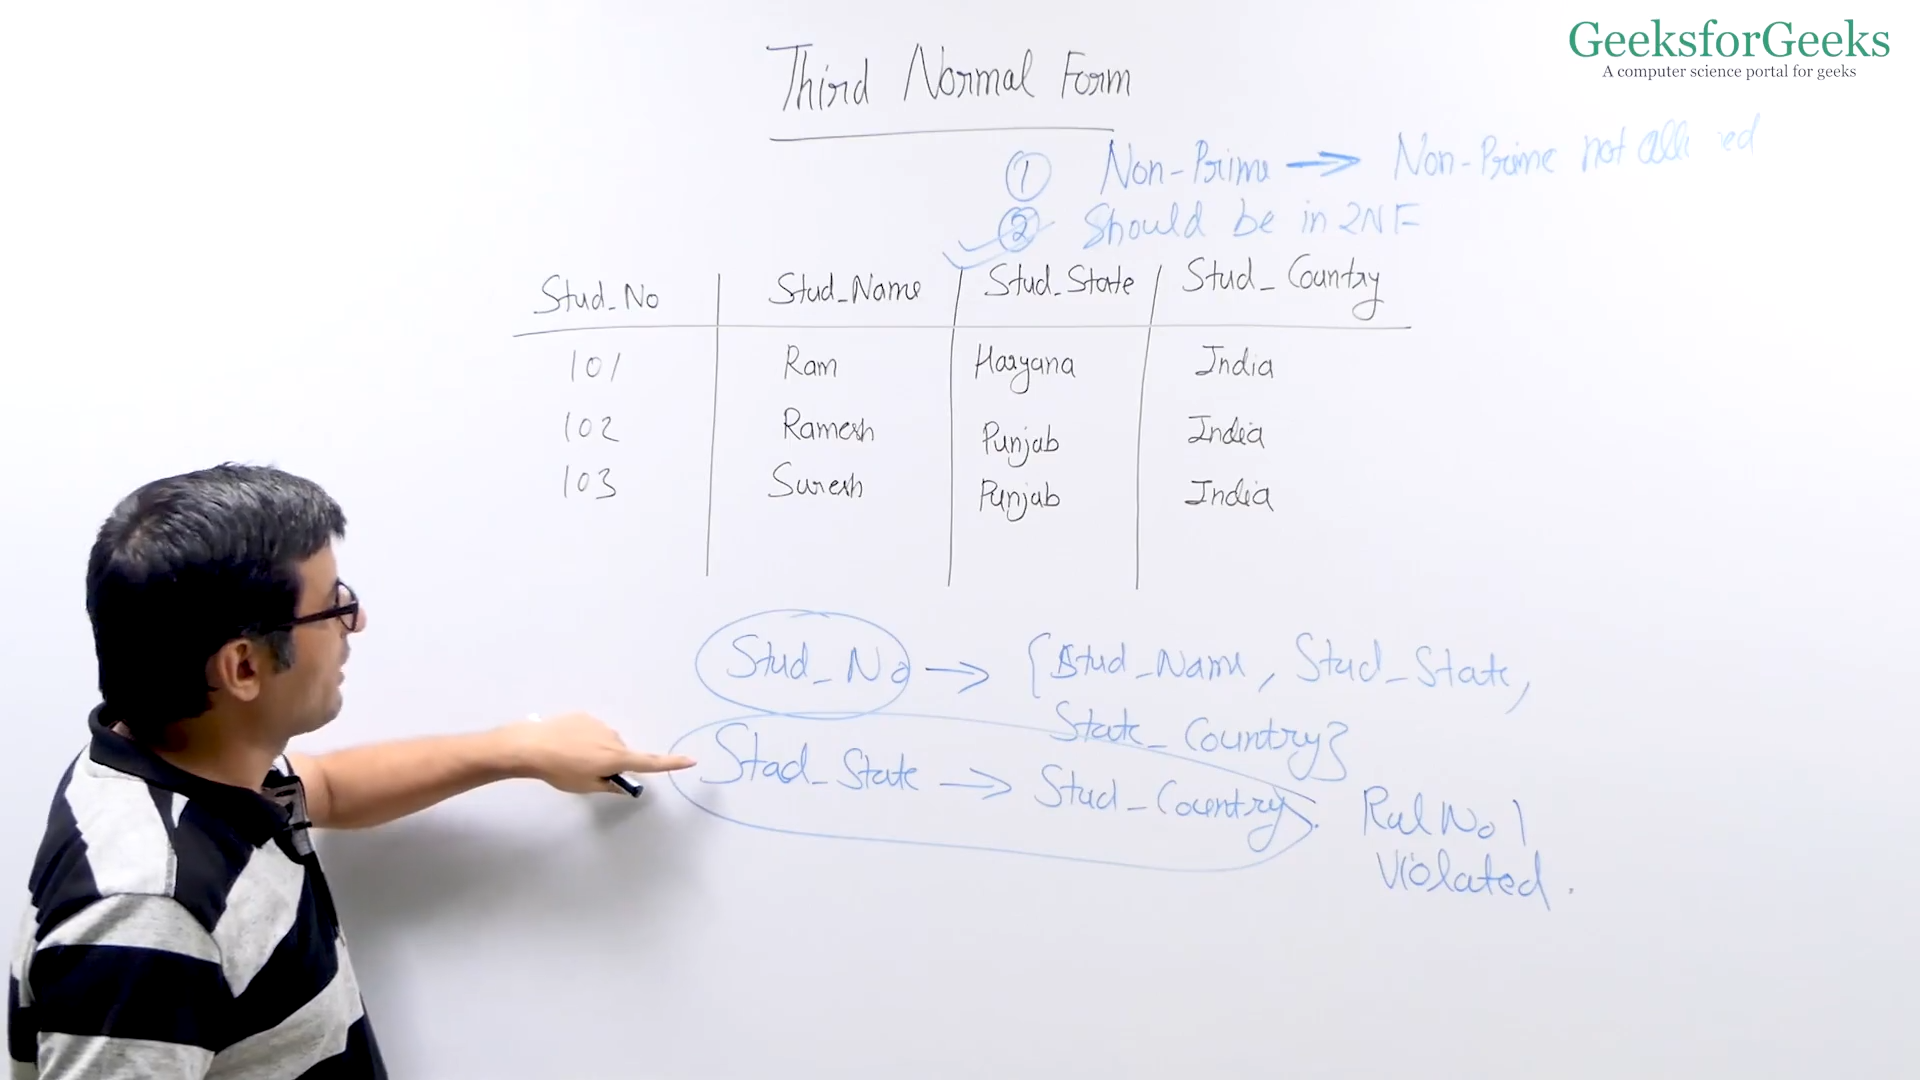 GeeksforGeeks
A computer science portal for geeks
Third Normal Form
① Non-Prime → Non-Prime not allowed
② Should be in 2NF
Stud_No Stud_Name Stud_State Stud_Country
101 Ram Haryana India
102 Ramesh Punjab India
103 Suresh Punjab India
Stud_No → {Stud_Name, Stud_State,
State_Country}
Stud_State → Stud_Country.
Rul No 1
Violated.